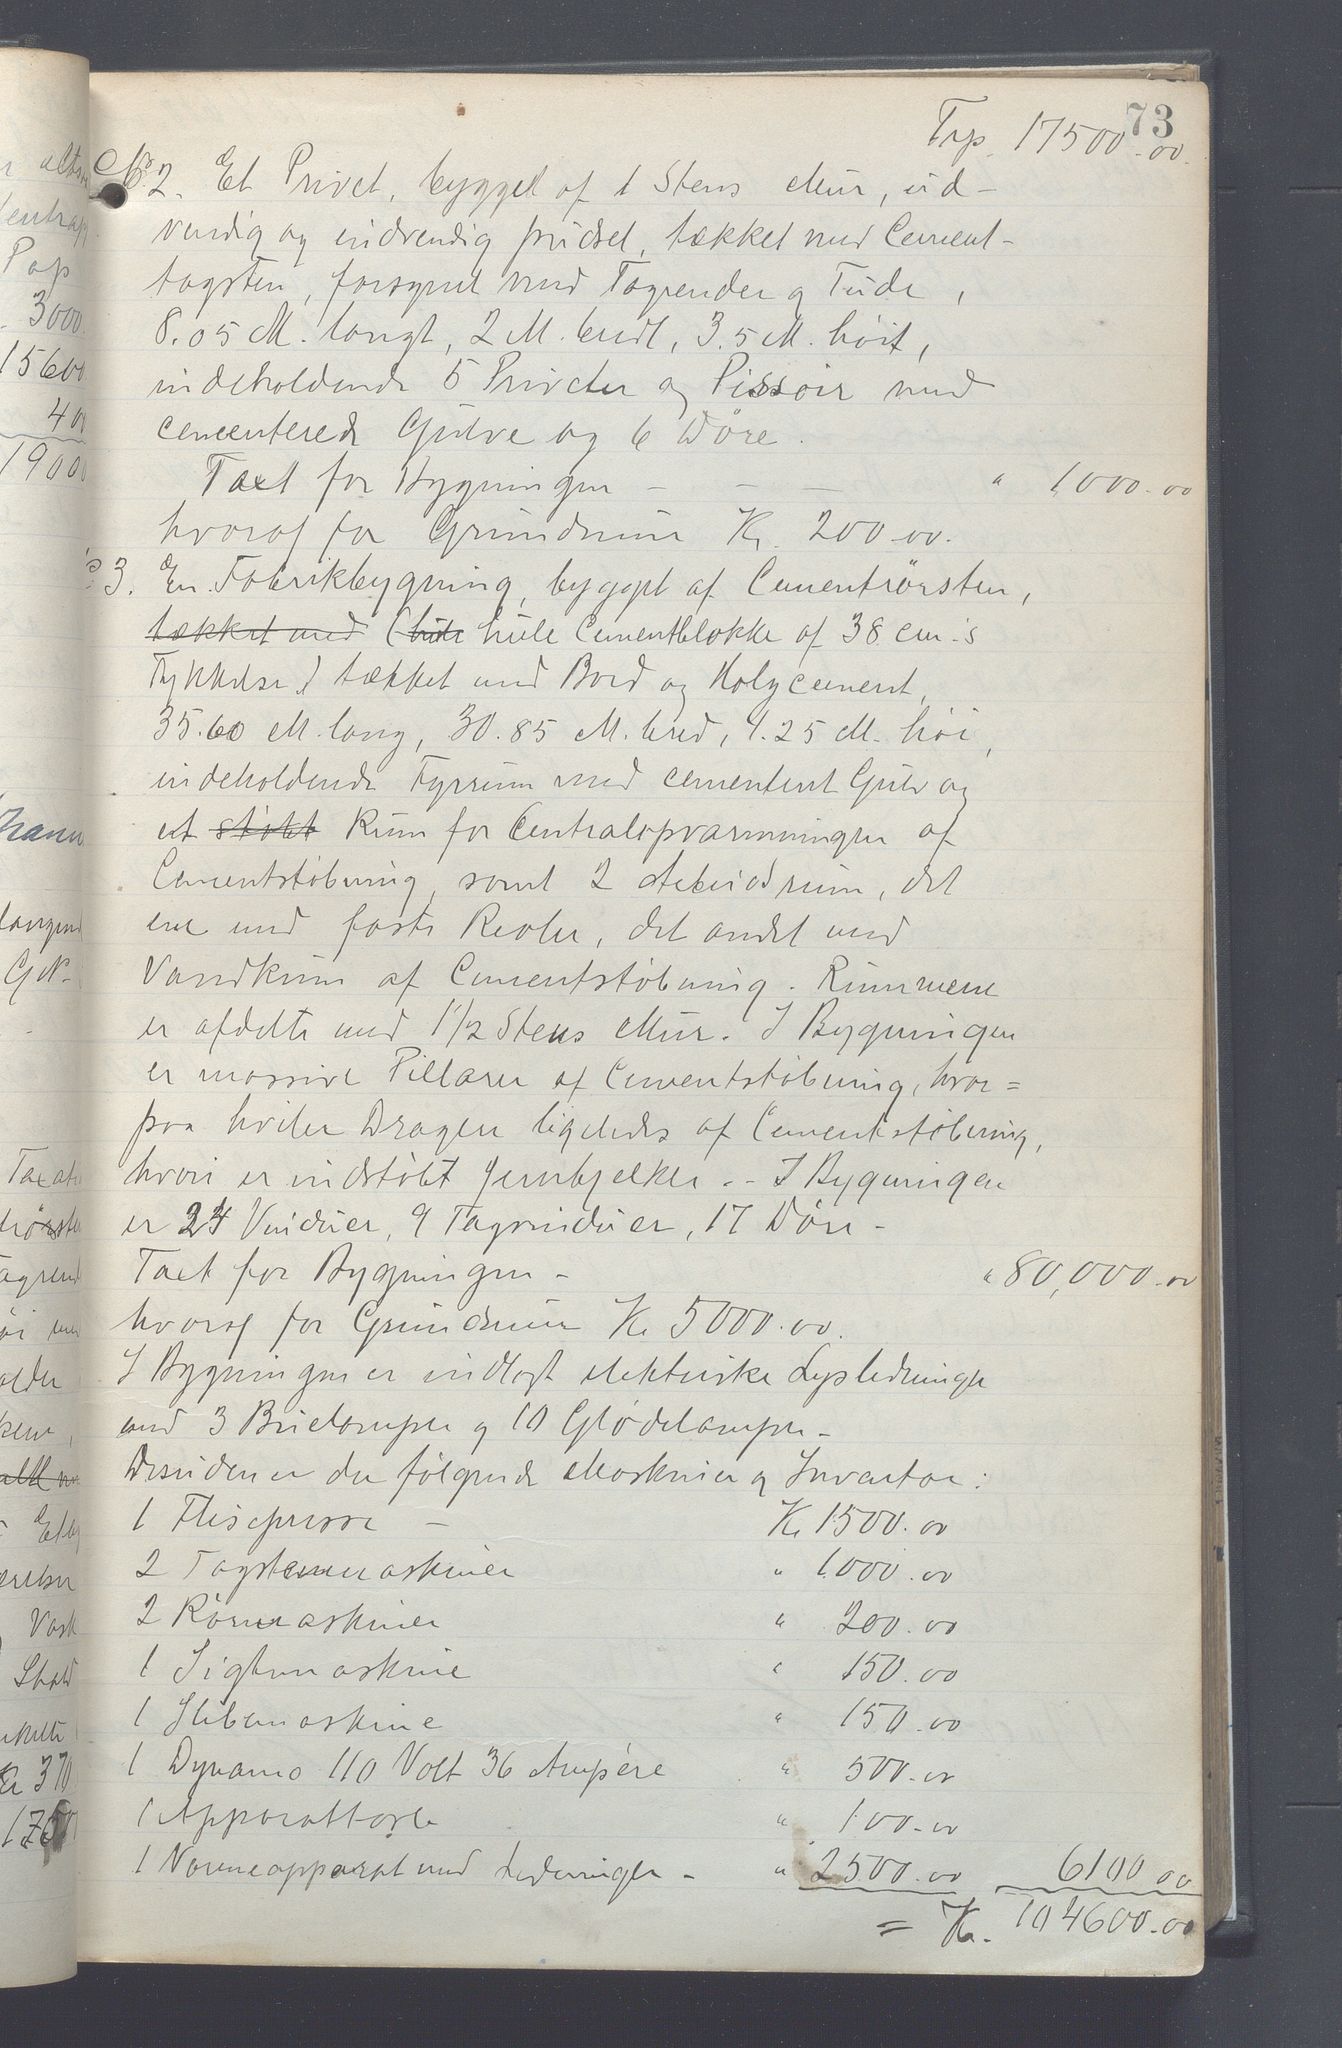 73
Trp. 17500.00.
No 2. Et Privet, bygget af 1 Stens Mur, ud-
vendig og indvendig pudset, tækket med Cement-
tagsten, forsynet med Tagrender og Tude,
8.05 M. langt, 2 M. bredt, 3.5 M. høit,
indeholdende 5 Priveter og Pissoir med
cementerede Gulve og 6 Døre.
Taxt for Bygningen - - - " 1000.00
hvoraf for Grundmur Kr. 200.00.
3. En Fabrikbygning, bygget af Cementrørsten,
tækket med (hule hule Cementblokke af 38 cm.s
Tykkelse) tækket med Bord og Holzcement,
35.60 M. lang, 30.85 M. bred, 4.25 M. høi,
indeholdende Fyrrum med cementeret Gulv og
et støbt Rum for Centralopvarmningen af
Cementstøbning, samt 2 Arbeidsrum, det
ene med faste Reoler, det andet med
Vandkum af Cementstøbning. Rummene
er afdelte med 1 1/2 Stens Mur. I Bygningen
er massive Pillarer af Cementstøbning, hvor=
paa hviler Dragere ligeledes af Cementstøbning,
hvori er indstøbt Jernbjelker.- I Bygningen
er 24 Vinduer, 9 Tagvinduer, 17 Døre -
Taxt for Bygningen - " 80,000.00
hvoraf for Grundmur Kr 5000.00.
I Bygningen er indlagt elektriske Lysledninger
med 3 Buelamper og 10 Glødelamper -
Desuden er der følgende Maskiner og Inventar:
1 Flisepresse - Kr 1500.00
2 Tagstenmaskiner " 1000.00
2 Rørmaskiner " 200.00
1 Sigtemaskine " 150.00
1 Slibemaskine " 150.00
1 Dynamo 110 Volt 36 Ampére " 500.00
1 Apparattavle " 100.00
1 Varmeapparat med Ledninger - " 2500.00 6100 00
= Kr. 104600.00